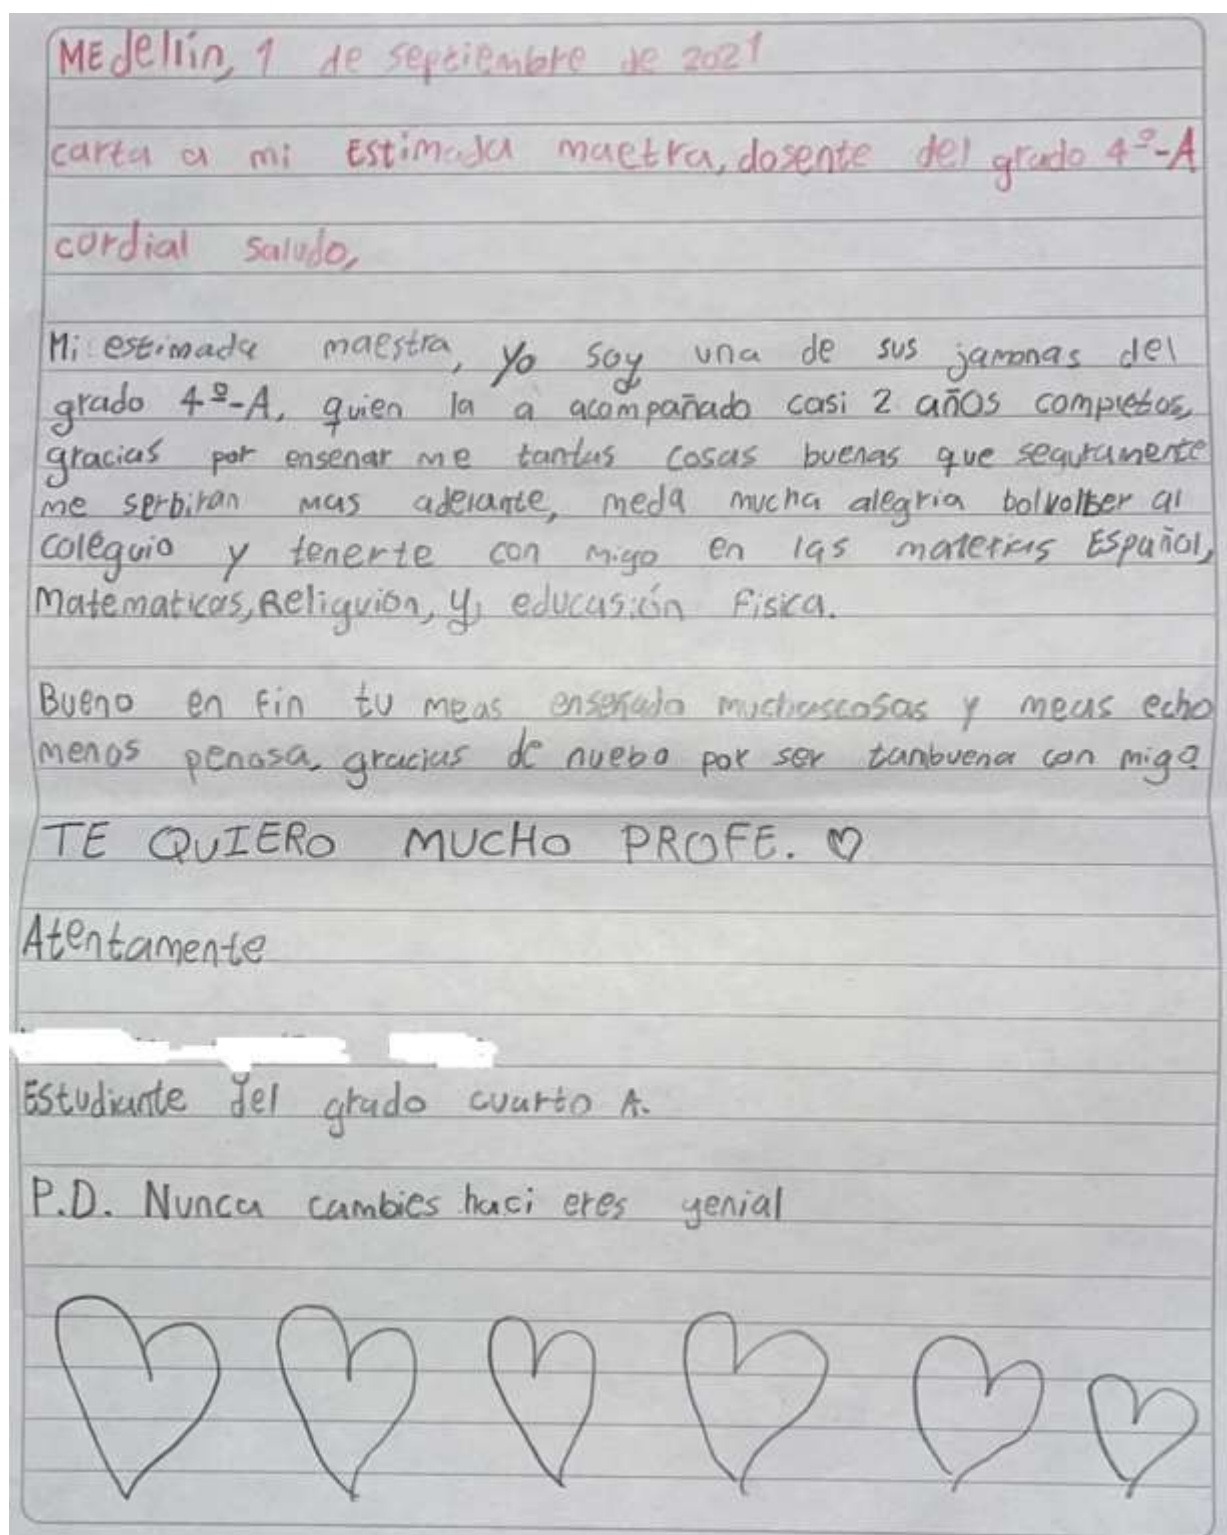 MEdellín, 1 de septiembre de 2021
carta a mi Estimada maetra, dosente del grado 4º-A
cordial saludo,
Mi estimada maestra, yo soy una de sus jamonas del
grado 4º-A, quien la a acompañado casi 2 años completos,
gracias por ensenar me tantas cosas buenas que seguramente
me serbiran mas adelante, meda mucha alegria bolvolber al
coleguio y tenerte con migo en las materias Español,
Matematicas, Religuion, y, educasión Fisica.
Bueno en fin tu meas enseñado muchascosas y meas echo
menos penosa, gracias de nuebo por ser tanbuena con migo.
TE QUIERO MUCHO PROFE. ♡
Atentamente
Estudiante del grado cuarto A.
P.D. Nunca cambies haci eres genial